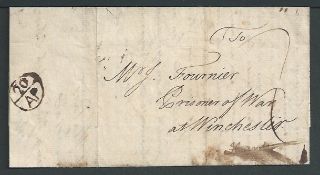 To
Mrs. Fournier
Prisoner of War
at Winchester
20
AP